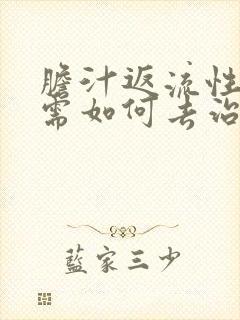 膽汁返流性
需如何去治
藍家三少